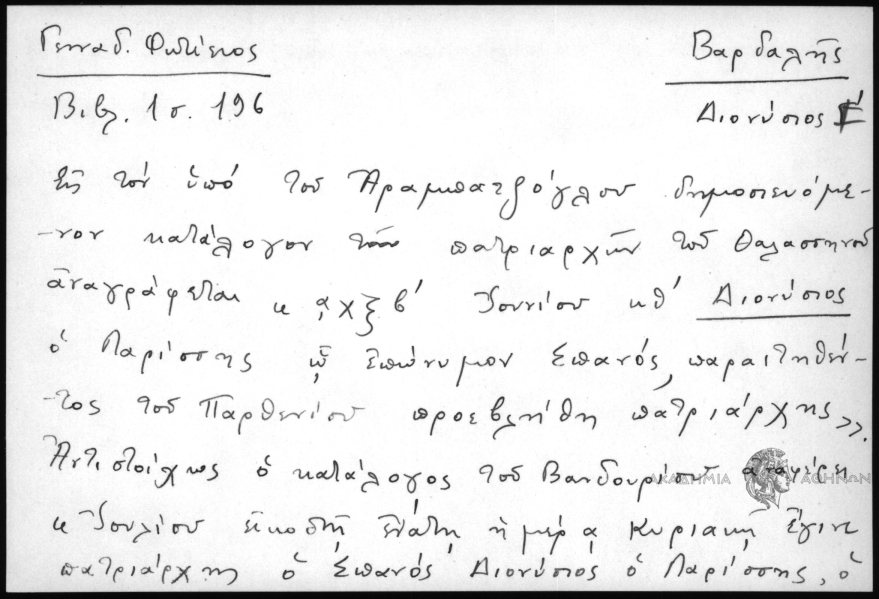 Γενναδ. Φωτίειος
Βαρδαλῆς
Βιβλ. 1 σ. 196
Διονύσιος Γ΄
Εἰς τόν ὑπό τοῦ Ἀραμπατζόγλου δημοσιευόμε-
-νον κατάλογον τῶν πατριαρχῶν τοῦ Θαλασσηνοῦ
ἀναγράφεται « ͵αχξβ΄ Ἰουνίου κθ΄ Διονύσιος
ὁ Λαρίσσης ᾧ ἐπώνυμον Σπανός, παραιτηθέν-
-τος τοῦ Παρθενίου προεβλήθη πατριάρχης».
Ἀντιστοίχως ὁ κατάλογος τοῦ Βανδουρίου ἀναφέρει
« Ἰουλίου εἰκοστῇ ἐνάτῃ ἡμέρᾳ Κυριακῇ ἔγινε
πατριάρχης ὁ Σπανός, Διονύσιος ὁ Λαρίσσης, ὁ
ΑΚΑΔΗΜΙΑ ΑΘΗΝΩΝ